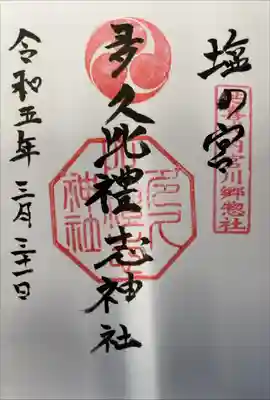 塩の宮
多久比禮志神社
令和五年 三月三十一日
宮川郷惣社
神社